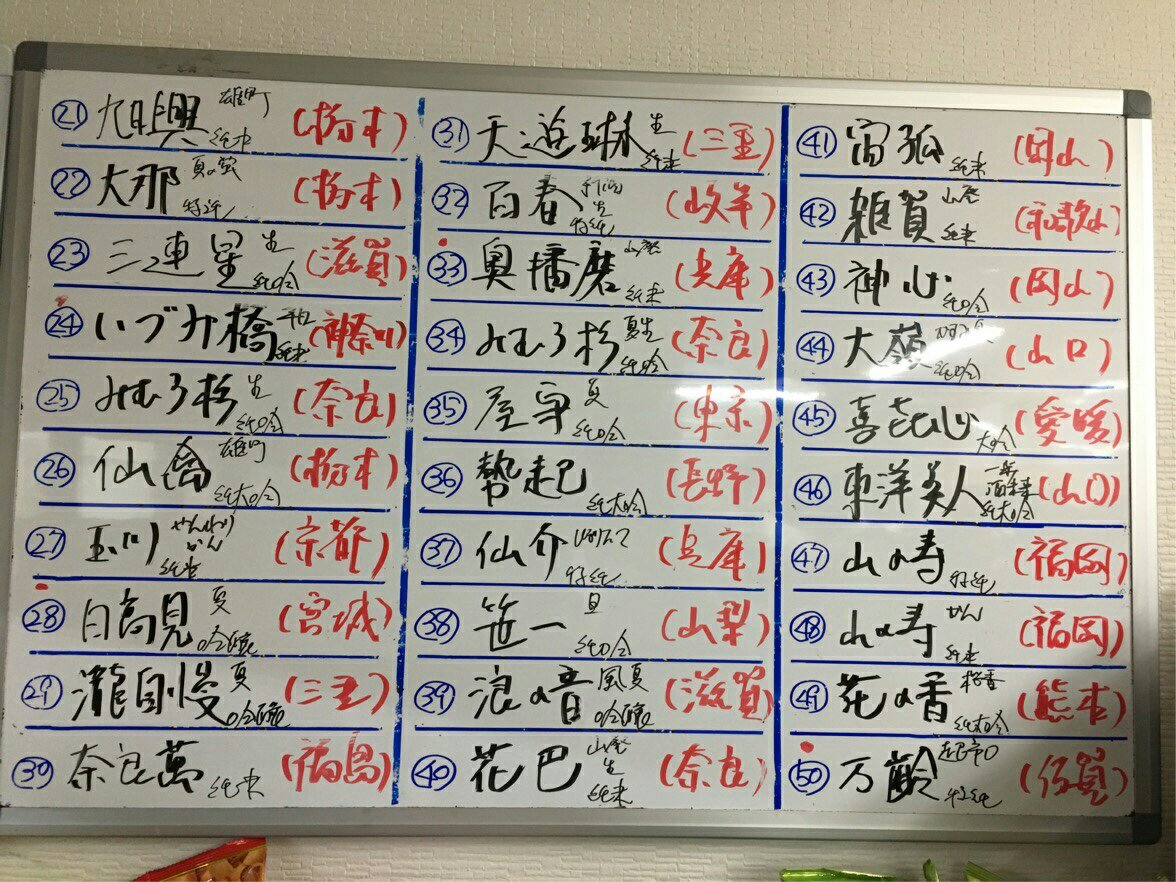 ㉑ 旭興 雄町 純米 (栃木)
㉒ 大那 夏の蛍 特純 (栃木)
㉓ 三連星 生 純吟 (滋賀)
㉔ いづみ橋 純米 (神奈川)
㉕ みむろ杉 生 純吟 (奈良)
㉖ 仙禽 雄町 純大吟 (栃木)
㉗ 玉川 やんわり かん (京都)
㉘ 日高見 夏 吟醸 (宮城)
㉙ 瀧自慢 夏 吟醸 (三重)
㉚ 奈良萬 純米 (福島)
㉛ 天遊琳 生 純米 (三重)
㉜ 百春 生 特純 (岐阜)
㉝ 奥播磨 山廃 純米 (兵庫)
㉞ みむろ杉 夏生 純吟 (奈良)
㉟ 屋守 夏 純吟 (東京)
㊱ 勢起 純大吟 (長野)
㊲ 仙介 特純 (兵庫)
㊳ 笹一 旦 純吟 (山梨)
㊴ 浪の音 風夏 吟醸 (滋賀)
㊵ 花巴 山廃 生 純米 (奈良)
㊶ 宵狐 純米 (岡山)
㊷ 雑賀 山廃 純米 (和歌山)
㊸ 神心 純吟 (岡山)
㊹ 大嶺 純吟 (山口)
㊺ 喜㐂心 大吟 (愛媛)
㊻ 東洋美人 純大吟 (山口)
㊼ 山の寿 特純 (福岡)
㊽ 山の寿 かん 純米 (福岡)
㊾ 花の香 桜香 純大吟 (熊本)
㊿ 万齢 超辛口 特純 (佐賀)